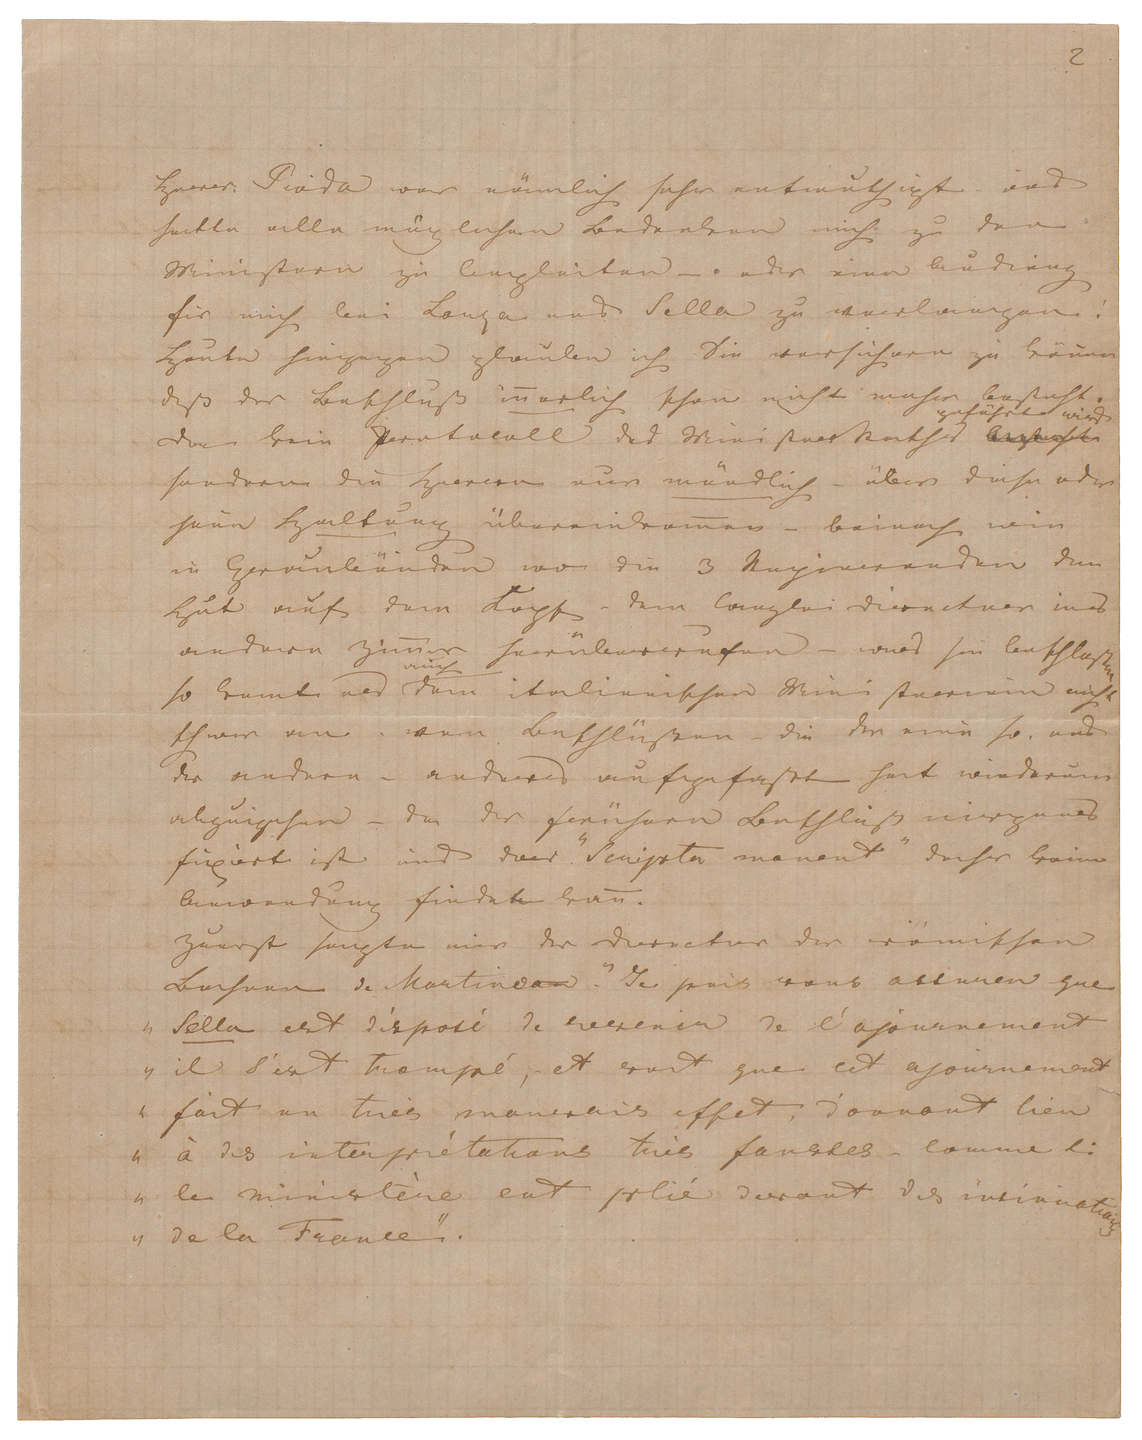 2
Herr Pioda war nämlich sehr entmuthigt – und
hatte alle möglichen Bedenken mich zu den
Ministern zu begleiten – oder eine Audienz
für mich bei Lanza und Sella zu verlangen!
Heute hingegen glaube ich Sie versichern zu können
daß der Beschluß innerlich schon nicht mehr besteht.
geführt wird
Da kein Protocoll des Ministerrathes
sondern die Herren nur mündlich – über diese oder
jene Haltung übereinkommen – beinah wie
in Graubünden wo die 3 Regierenden den
Hut auf dem Kopf – dem Canzlei director ins
andere Zimmer herüberrufen – was sie beschlossen
auch
so kommt es dem italienischen Ministerium nicht
schwer an von Beschlüssen – die der eine so, und
der andere – anders aufgefaßt hat wiederum
abzugehen – da der frühere Beschluß nirgends
fixiert ist und das "Scripta manent" daher keine
Anwendung finden kann.
Zuerst sagte mir der Director der römischen
Bahnen de Martino "Je puis vous assurer que
" Sella est disposé de revenir de l'ajournement
" il s'est trompé, et voit que cet ajournement
" fait un très mauvais effet, donnant lieu
" à des interprétations très fausses – comme si
" le ministère eut plié devant des insinuations
" de la France".